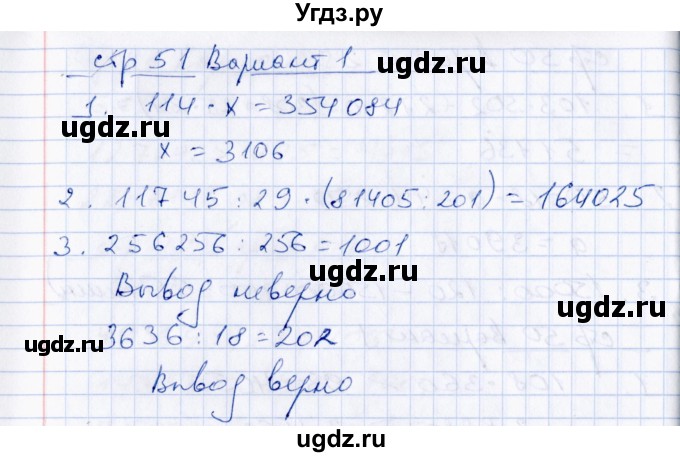 Угдз.ру
стр 51 Вариант 1
ugdz.ru
1. 114 · x = 354084
ugdz.ru
ugdz.ru
x = 3106
2. 11745 : 29 · (81405 : 201) = 164025
3. 256256 : 256 = 1001
ugdz.ru
ugdz.ru
Вывод неверно
ugdz.ru
3636 : 18 = 202
ugdz.ru
Вывод верно
ugdz.ru